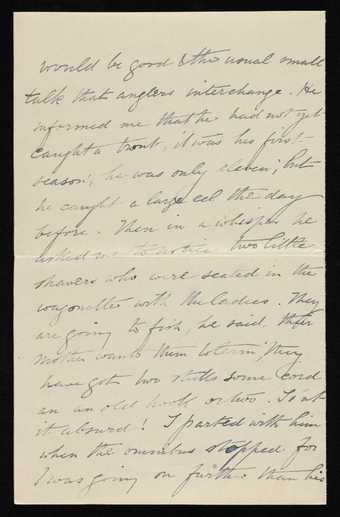 would be good & the usual small
talk that anglers interchange. He
informed me that he had not yet
caught a trout, it was his first
season, he was only eleven, but
he caught a large eel the day
before. Then in a whisper he
asked me to notice two little
shavers who were seated in the
wagonette with the ladies. They
are going to fish, he said. their
mother wants them to learn, they
have got two sticks some cord
an an old hook or two. Is'nt
it absurd! I parted with him
when the omnibus stopped for
I was going on further than his